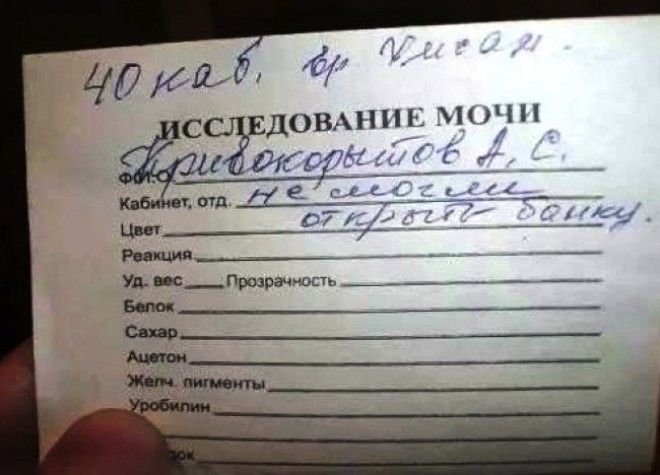 40 каб. вр.
ИССЛЕДОВАНИЕ МОЧИ
Кривокорытов А. С.
Кабинет, отд. не смогли
Цвет открыть банку.
Реакция
Уд. вес Прозрачность
Белок
Сахар
Ацетон
Желч. пигменты
Уробилин